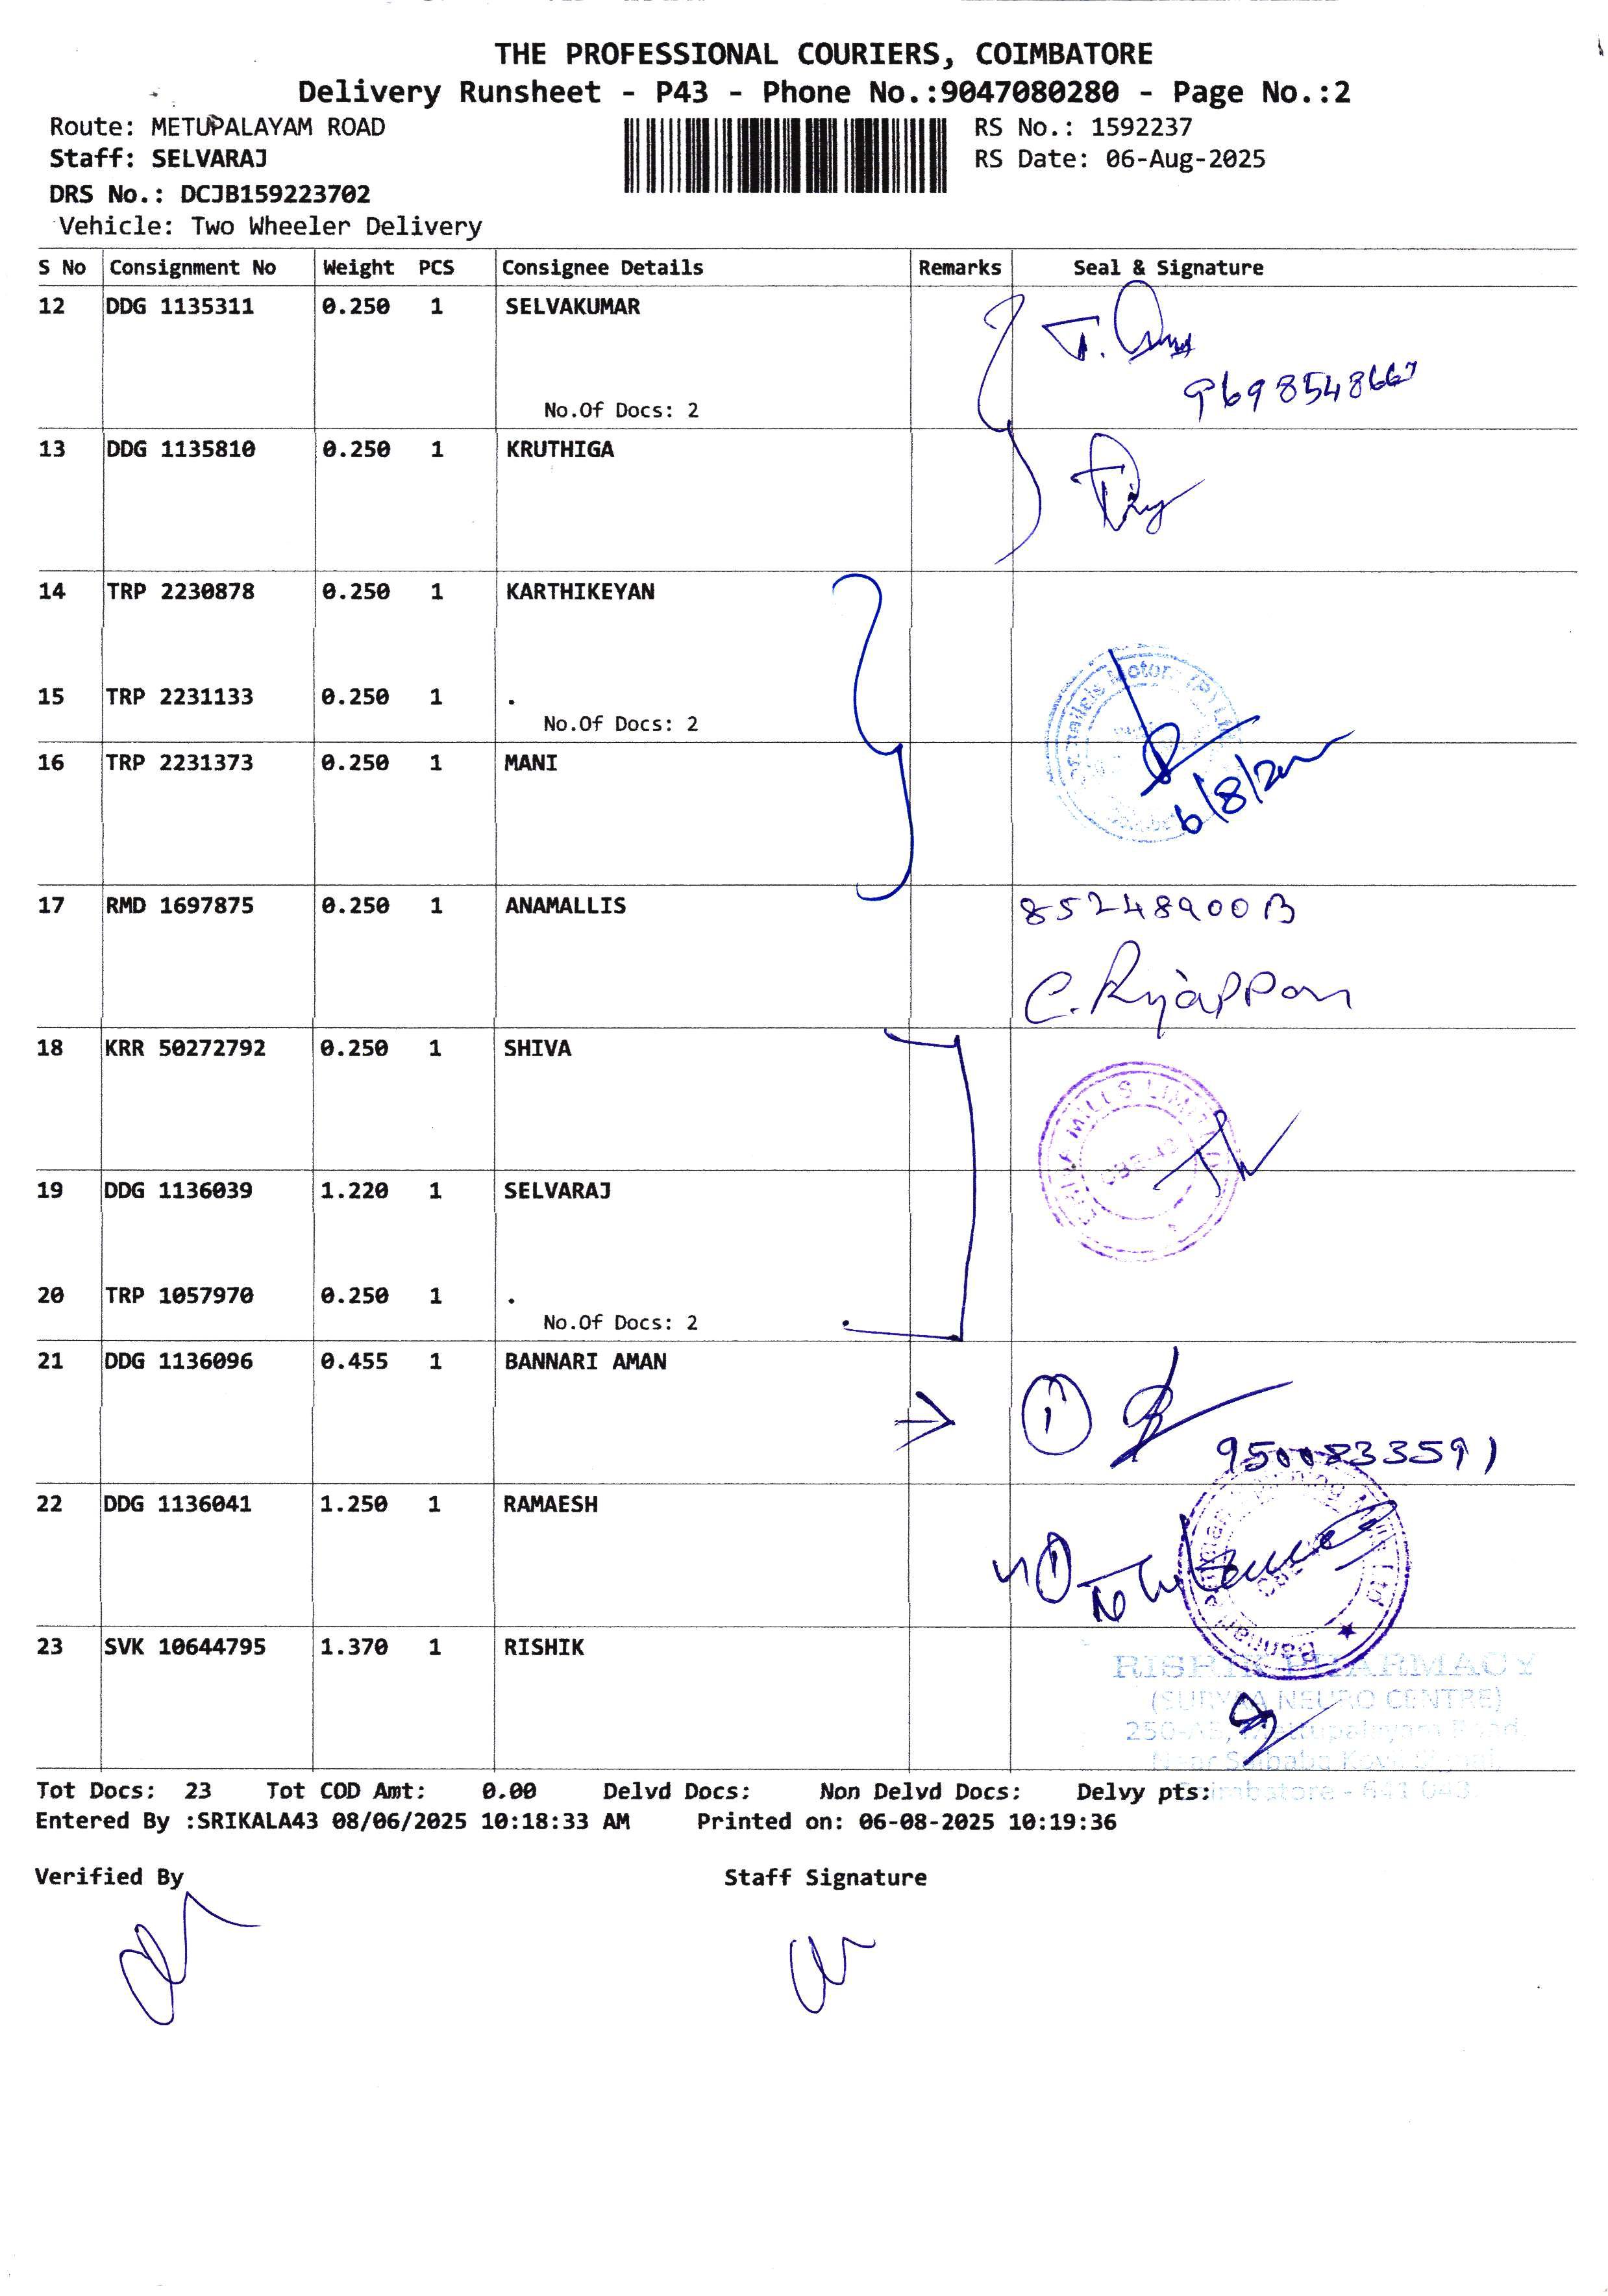 THE PROFESSIONAL COURIERS, COIMBATORE
Delivery Runsheet - P43 - Phone No.:9047080280 - Page No.:2
Route: METUPALAYAM ROAD
RS No.: 1592237
Staff: SELVARAJ
RS Date: 06-Aug-2025
DRS No.: DCJB159223702
Vehicle: Two Wheeler Delivery
S No Consignment No Weight PCS Consignee Details Remarks Seal & Signature
12 DDG 1135311 0.250 1 SELVAKUMAR
9698548667
No.Of Docs: 2
13 DDG 1135810 0.250 1 KRUTHIGA
14 TRP 2230878 0.250 1 KARTHIKEYAN
15 TRP 2231133 0.250 1 .
No.Of Docs: 2
16 TRP 2231373 0.250 1 MANI
6/8/
17 RMD 1697875 0.250 1 ANAMALLIS
18 KRR 50272792 0.250 1 SHIVA
MILLS LIMITED
19 DDG 1136039 1.220 1 SELVARAJ
20 TRP 1057970 0.250 1 .
No.Of Docs: 2
21 DDG 1136096 0.455 1 BANNARI AMAN
9500833591
22 DDG 1136041 1.250 1 RAMAESH
23 SVK 10644795 1.370 1 RISHIK
RISHIK PHARMACY
(SURYAA NEURO CENTRE)
Mettupalayam Road.
Near Saibaba Kovil Signal,
Coimbatore - 641 043.
Tot Docs: 23 Tot COD Amt: 0.00 Delvd Docs: Non Delvd Docs: Delvy pts:
Entered By :SRIKALA43 08/06/2025 10:18:33 AM Printed on: 06-08-2025 10:19:36
Verified By Staff Signature